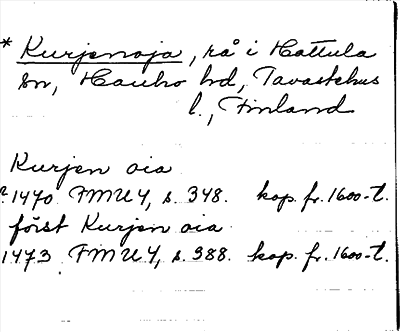 * Kurjenoja, rå i Hattula
sn, Hauho hd, Tavastehus
l., Finland
Kurjen oia
? 1470 FMU 4, s. 348. kop. fr. 1600-t.
först Kurjen oia
1473 FMU 4, s. 388. kop. fr. 1600-t.